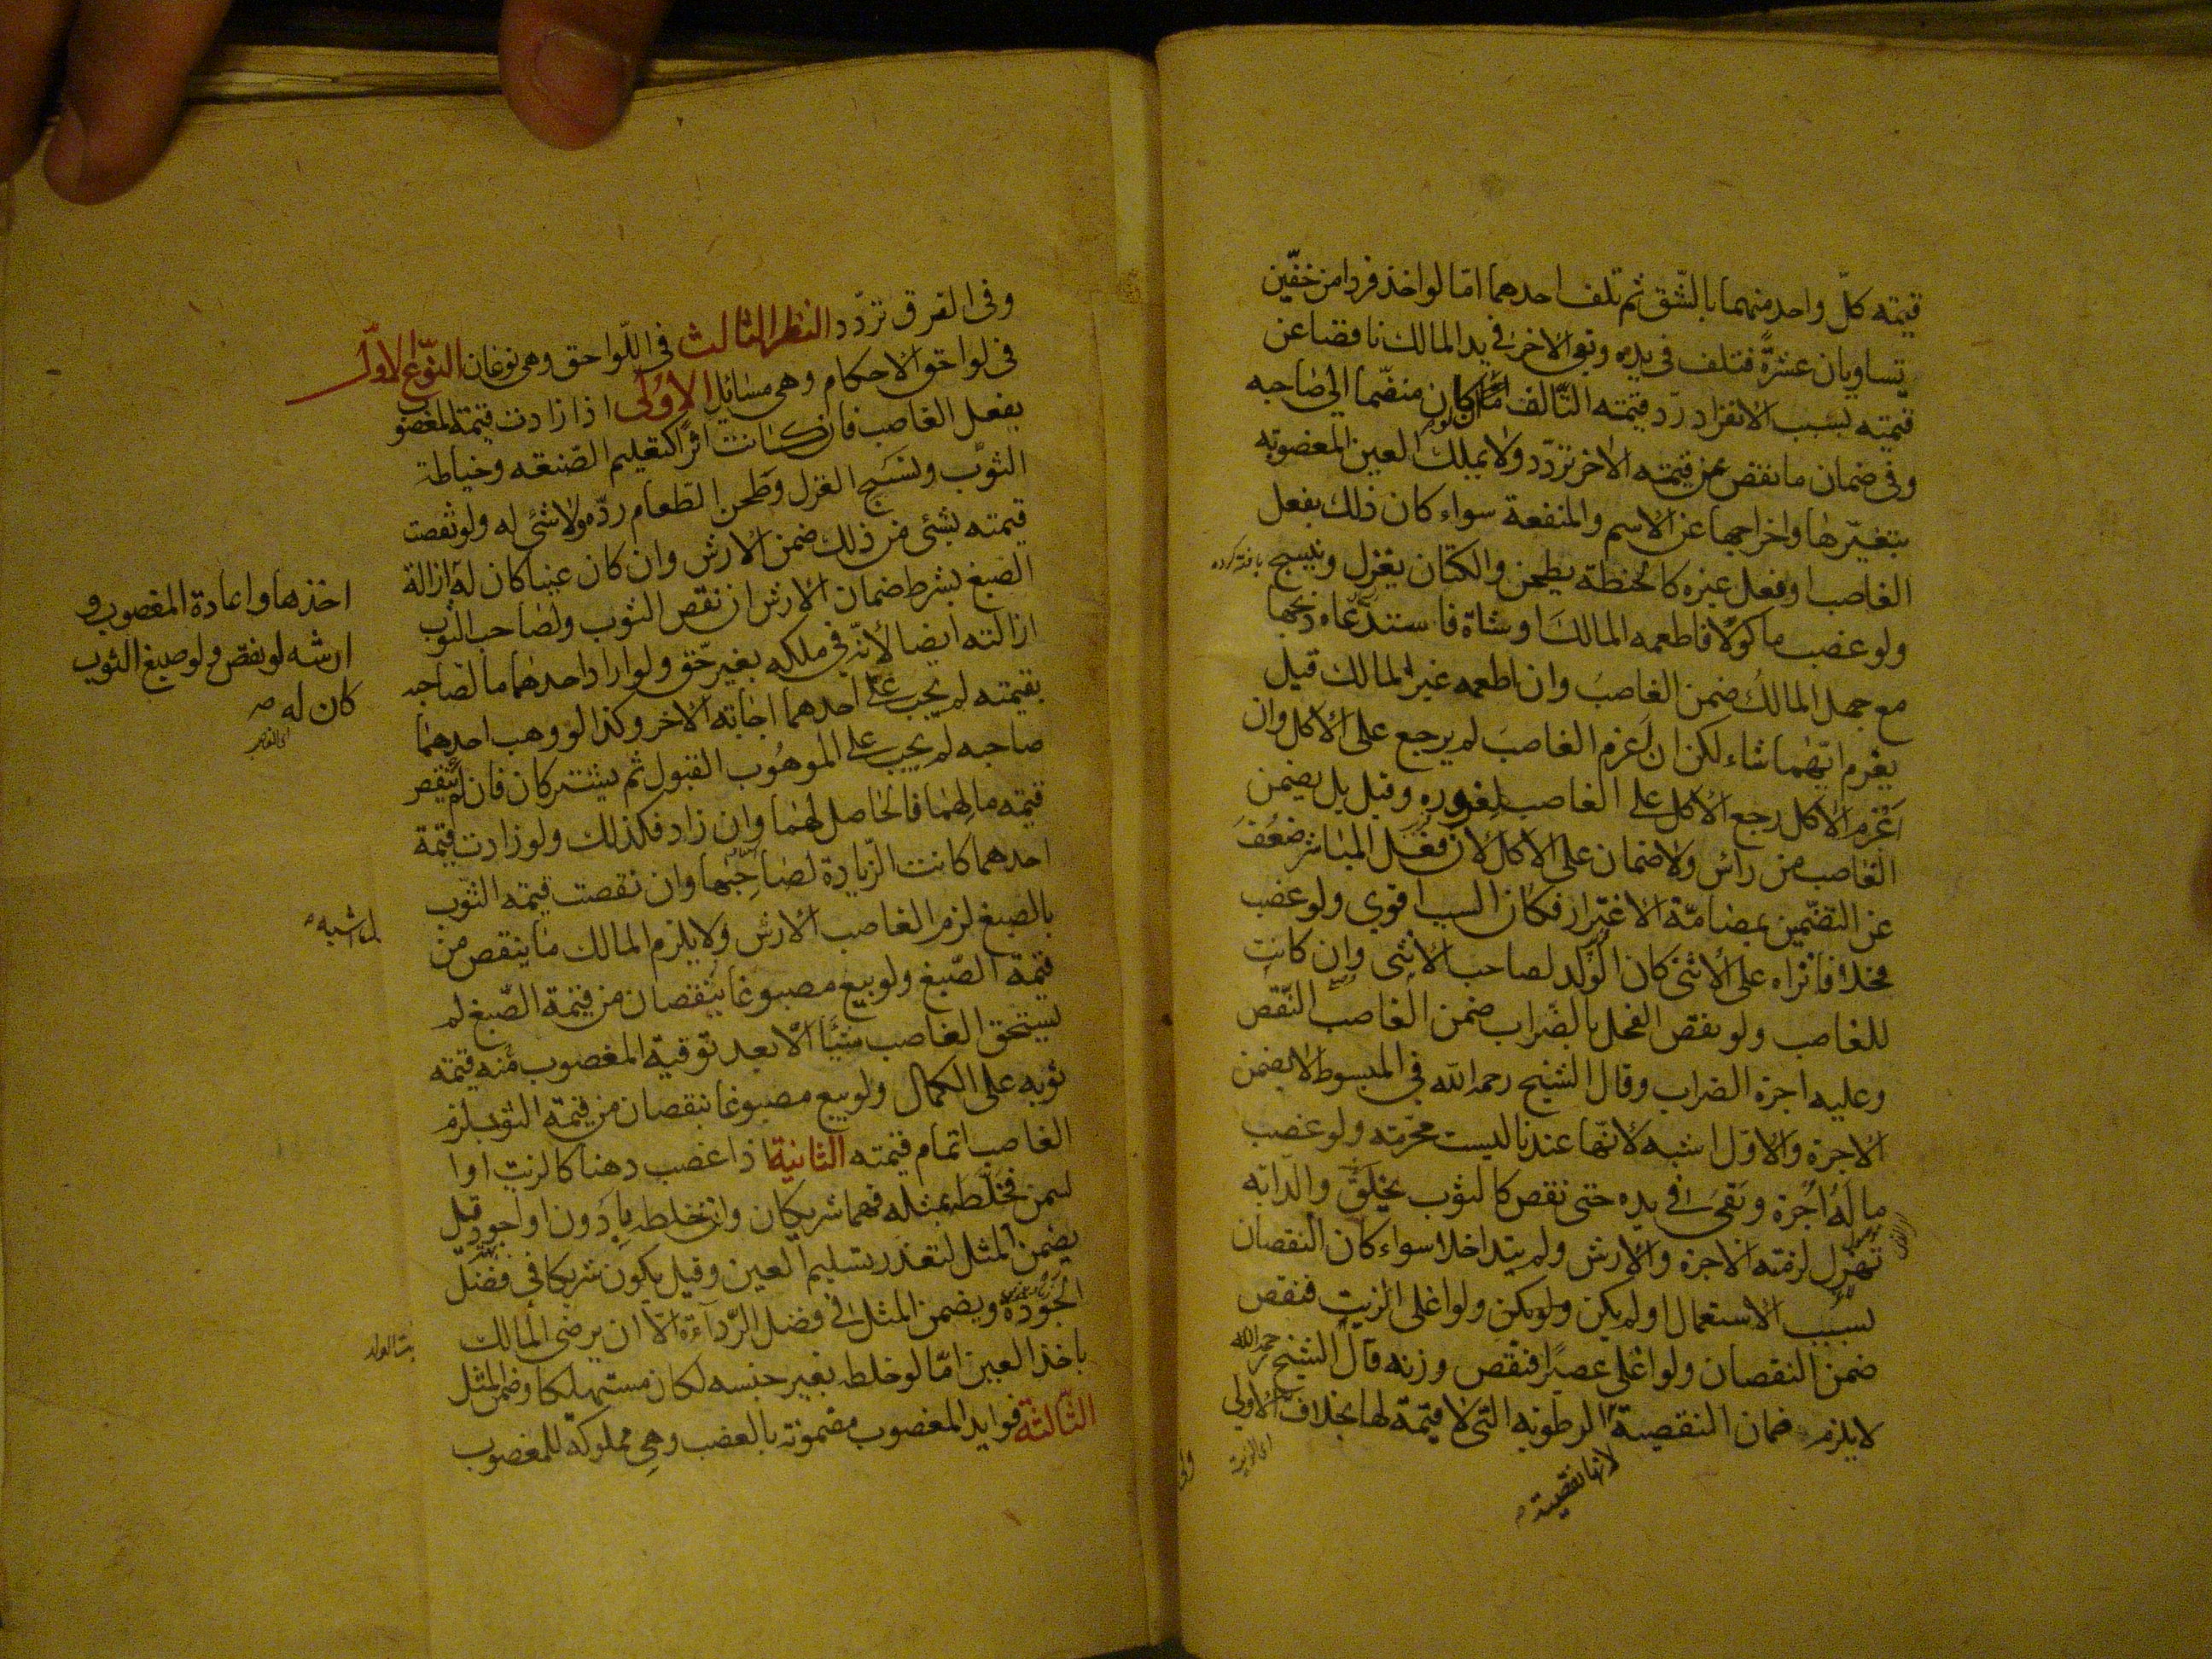 قيمته كلّ واحد منهما بالشّق ثم تلف احدهما امّا لو اخذ فردا من خفّين
يتساويان عشرةً فتلف في يده وبقى الاخر في يد المالك ناقصا عن
قيمته بسبب الانفراد ردّ قيمته التّالف ان لو كان منضمّا الى صاحبه
وفى ضمان ما نقص من قيمته الاخر تردّد ولا يملك العين المغصوبه
بتغيّرها واخراجها عن الاسم والمنفعة سواء كان ذلك بفعل
الغاصب او فعل غيره كالحنطة يطحن والكتان يغزل وينسج
ولو غصب ماكولا فاطعمه المالك او شاة فاستدعاه ذبحها
مع جهل المالك ضمن الغاصب وان اطعمه غير المالك قيل
يغرم ايّهما شاء لكن ان اغرم الغاصب لم يرجع على الاكل وان
اغرم الاكل رجع الاكل على الغاصب لغروره وقيل بل يضمن
الغاصب من راس ولا ضمان على الاكل لان فعل المباشر ضعف
عن التضمين بمضامّة الاغترار فكان السبب اقوي ولو غصب
فحلا فانزاه على الانثى كان الولد لصاحب الانثى وان كانت
للغاصب ولو نقص الفحل بالضّراب ضمن الغاصب النّقص
وعليه اجرة الضراب وقال الشيخ رحمه الله في المبسوط لا يضمن
الاجرة والاوّل اشبه لانها عندنا ليست محرّمته ولو غصب
ما له اجرة وبقى في يده حتى نقص كالثوب يخلق والدابه
تهزل لزمته الاجرة والارش ولم يتداخلا سواء كان النقصان
بسبب الاستعمال او لم يكن ولو اغلى الزيت فنقص
ضمن النقصان ولو اغلى عصيرا فنقص وزنه قال الشيخ رحمه الله
لا يلزم ضمان النقيصة الرطوبه التى لا قيمة لها بخلاف الاولى
لانها نقيصة
وفى الفرق تردّد النظر الثالث فى اللّواحق وهى نوعان النّوع الاوّل
فى لواحق الاحكام وهى مسائل الاولى اذا زادت قيمة المغصوب
بفعل الغاصب فان كانت اثرا كتعليم الصّنعه وخياطة
الثوب ونسج الغزل وطحن الطعام ردّه ولا شئ له ولو نقصت
قيمته بشئ من ذلك ضمن الارش وان كان عينا كان له
اخذها واعادة المغصوب و
ارشه لو نقص ولو صبغ الثوب
كان له صح
ازالة
الصبغ بشرط ضمان الارش ان نقص الثوب ولصاحب الثوب
ازالته ايضا لانّه في ملكه بغير حقّ ولو اراد احدهما ما لصاحبه
بقيمته لم يجب على احدهما اجابة الاخر وكذا لو وهب احدهما
صاحبه لم يجب على الموهوب القبول ثم يشتركان فان لم ينقص
قيمته ما لهما فالحاصل لهما وان زاد فكذلك ولو زادت قيمة
احدهما كانت الزّيادة لصاحبها وان نقصت قيمته الثوب
بالصبغ لزم الغاصب الارش ولا يلزم المالك ما ينقص من
قيمة الصّبغ ولو بيع مصبوغا بنقصان من قيمة الصّبغ لم
يستحق الغاصب شيئا الا بعد توفية المغصوب منه قيمته
ثوبه على الكمال ولو بيع مصبوغا بنقصان من قيمة الثوب لزم
الغاصب اتمام قيمته الثانية اذا غصب دهنا كالزيت او ا
لسمن فخلطه بمثله فهما شريكان وان خلطه بادون او اجود قيل
يضمن المثل لتعذر تسليم العين وقيل يكون شريكا فى فضل
الجودة ويضمن المثل في فضل الرّداءة الا ان يرضى المالك
باخذ العين امّا لو خلطه بغير جنسه لكان مستهلكا وضمن المثل
الثالثة فوايد المغصوب مضمونة بالغصب وهى مملوكة للمغصوب